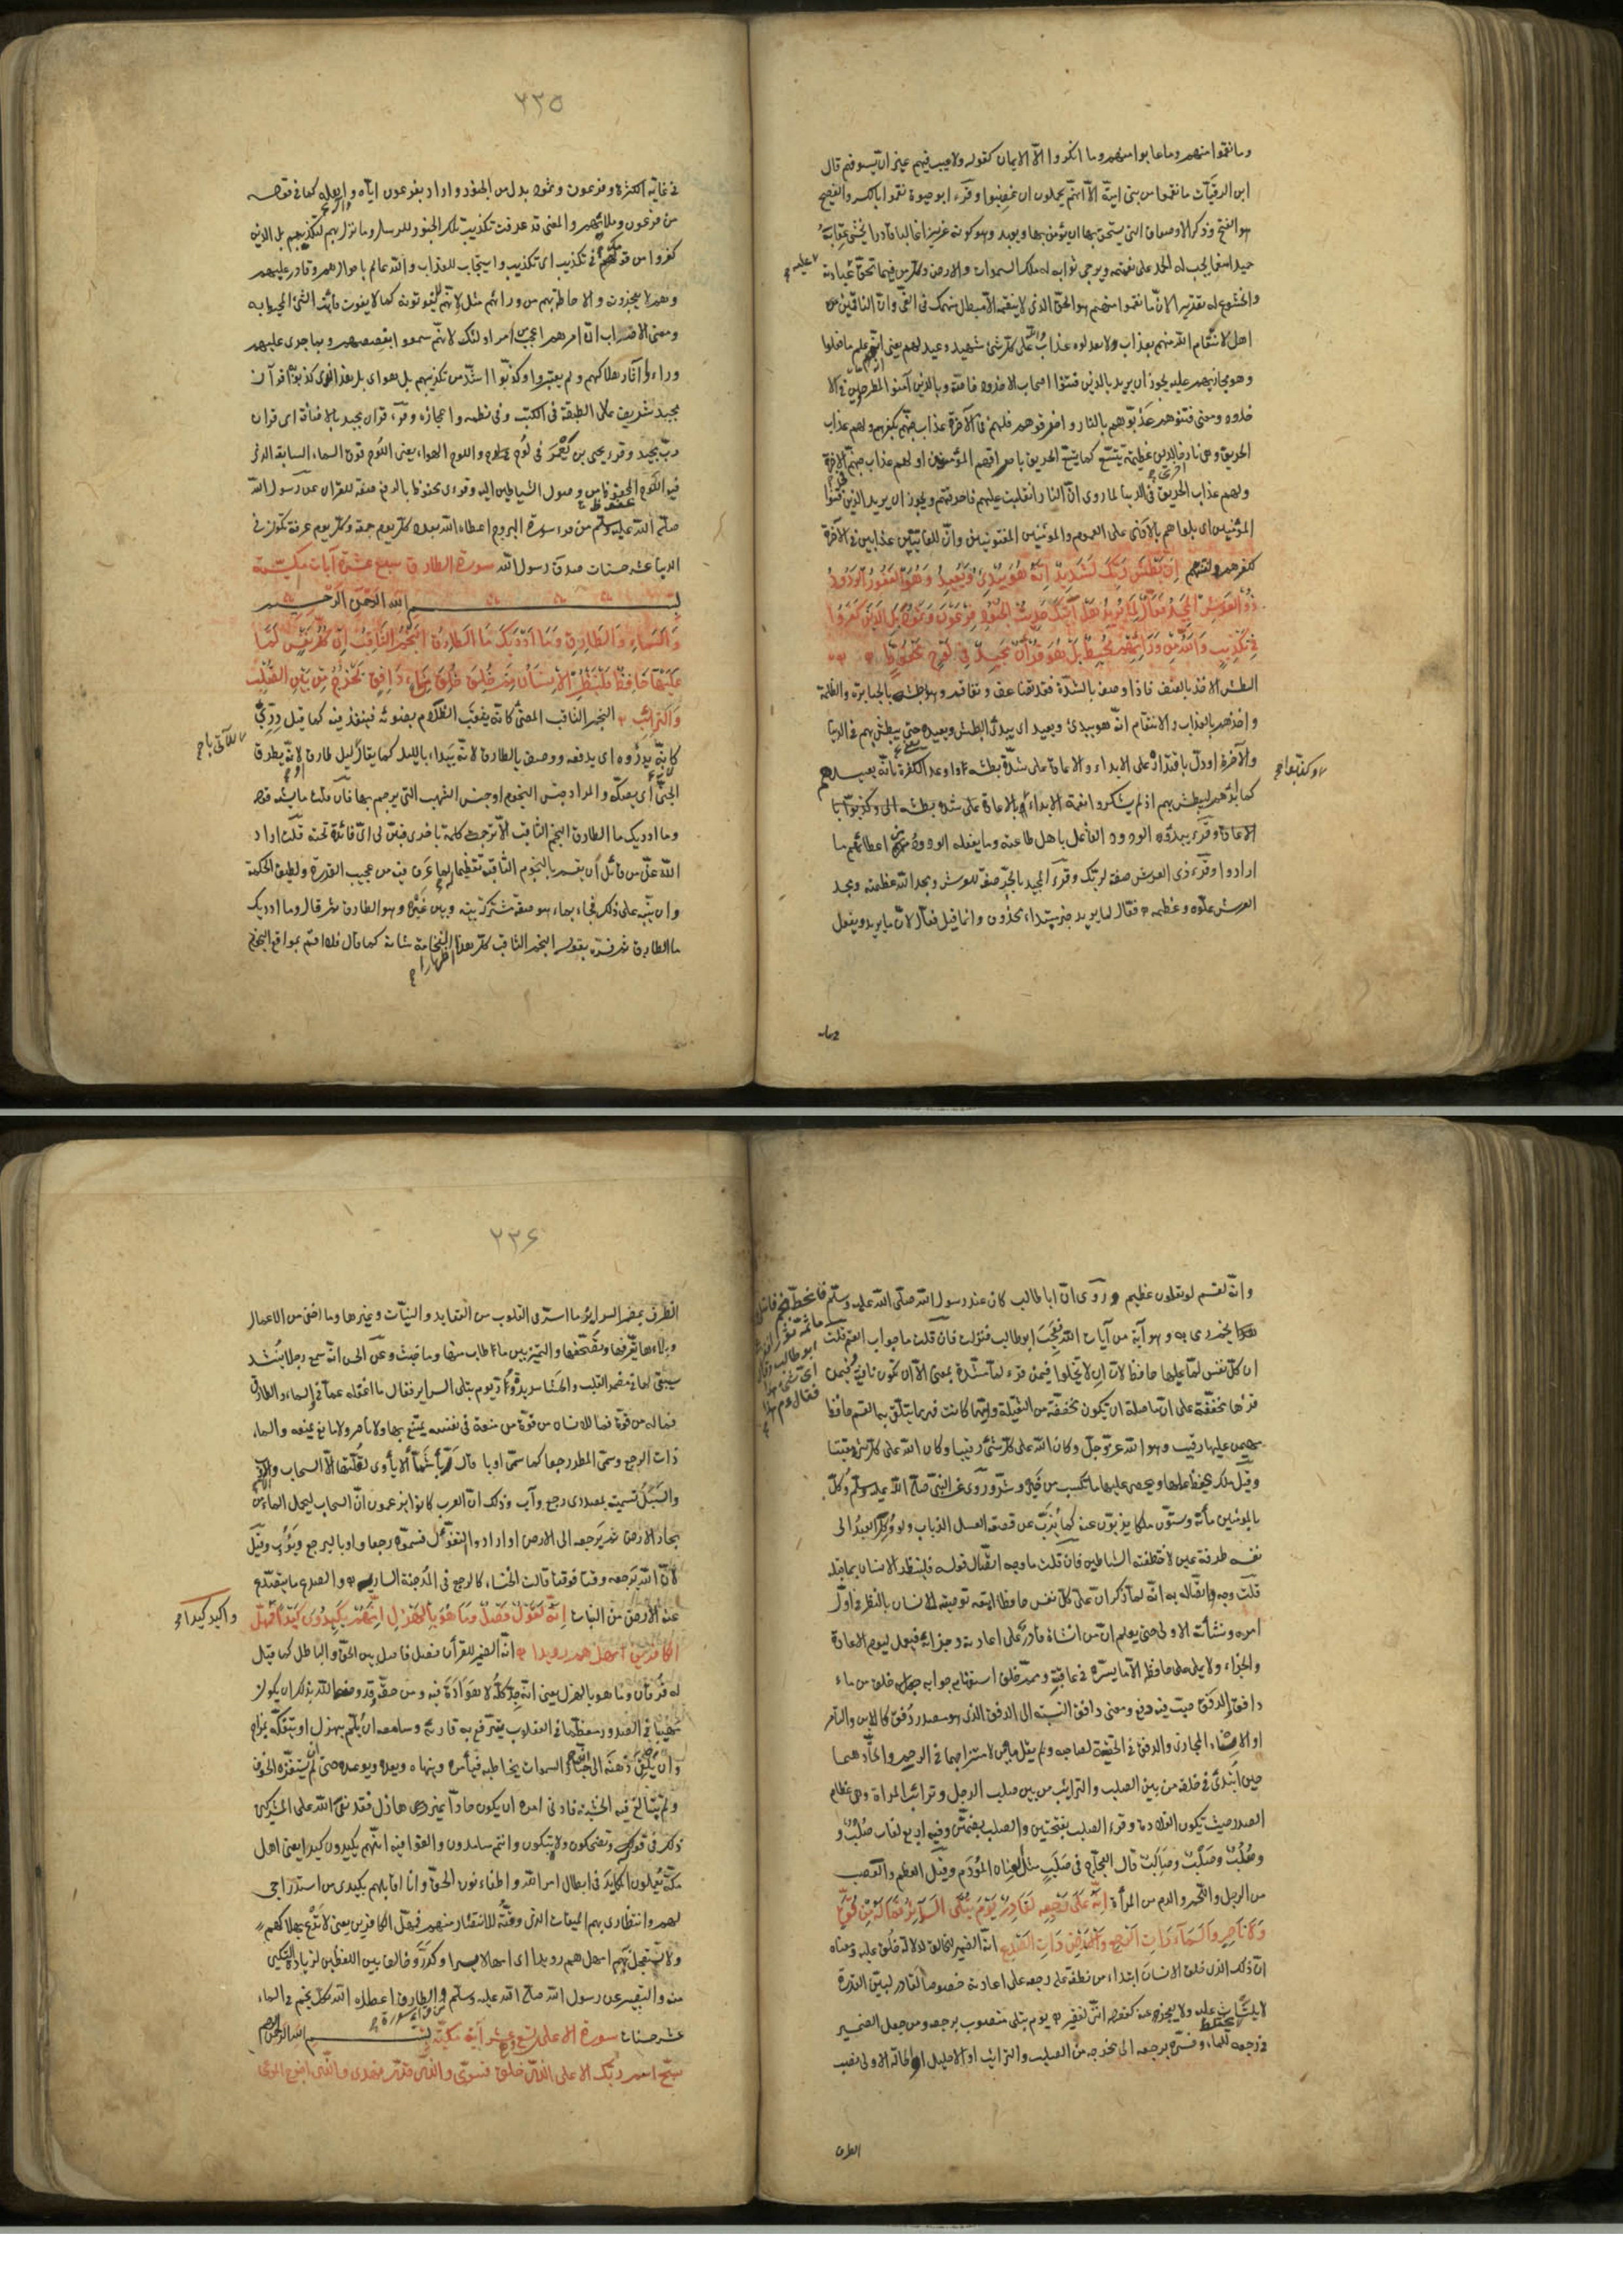 وما نقموا منهم وما عابوا منهم وما انكروا الّا الايمان كقوله ولا عيب فيهم غير انّ سيوفهم قال
ابن الرقيّات ما نقموا من بنى اميّة الّا انّهم يحلمون ان غضبوا وقرء ابو حيوة نقموا بالكسر والفصيح
هو الفتح وذكر الاوصاف التى يستحق بها ان يؤمن به ويعبد وهو كونه عزيزا غالبا قادرا يخشى عقابه
حميدا منعما يجب له الحمد على نعمته ويرجى ثوابه له ملك السموات والارض وكل من فيهما تحقّ عبادته
عليه
والخشوع له تقديرا لانّ ما نقموا منهم هو الحقّ الذى لا ينقمه الّا مبطل منهمك فى الغىّ وانّ الناقمين
اهل لانتقام الله منهم بعذاب لا يعدله عذاب والله على كلّ شئ شهيد وعيد لهم يعنى انّه علم ما فعلوا
وهو مجازيهم عليه يجوز ان يريد بالذين فتنوا اصحاب الاخدود خاصّة وبالذين آمنوا المطرحين فى الا
خدود ومعنى فتنوهم عذّبوهم بالنار واحرقوهم فلهم فى الآخرة عذاب جهنّم بكفرهم ولهم عذاب
الحريق وهى نار اخرى عظيمة يتّسع كما يتّسع الحريق باحراقهم المؤمنين او لهم عذاب جهنّم فى الآخرة
ولهم عذاب الحريق فى الدنيا لما روى انّ النار انقلبت عليهم فاحرقتهم ويجوز ان يريد الذين فتنوا
المؤمنين اى بلوهم بالاذى على العموم والمؤمنين المفتونين وانّ للفاتنين عذابين فى الآخرة
لكفرهم ولفتنتهم اِنَّ بَطْشَ رَبِّكَ لَشَدِيدٌ اِنَّهُ هُوَ يُبْدِئُ وَيُعِيدُ وَهُوَ الْغَفُورُ الْوَدُودُ
ذُو الْعَرْشِ الْمَجِيدُ فَعَّالٌ لِمَا يُرِيدُ هَلْ اَتٰيكَ حَدِيثُ الْجُنُودِ فِرْعَوْنَ وَثَمُودَ بَلِ الَّذِينَ كَفَرُوا
فِى تَكْذِيبٍ وَاللّٰهُ مِنْ وَرَائِهِمْ مُحِيطٌ بَلْ هُوَ قُرْآنٌ مَجِيدٌ فِى لَوْحٍ مَحْفُوظٍ
البطش الاخذ بالعنف فاذا وصف بالشدّة فقد تضاعف وتفاقم وهو بطشه بالجبابرة والظلمة
واخذهم بالعذاب والانتقام انّه هو يبدئ ويعيد اى يبدئ البطش ويعيده يعنى يبطش بهم فى الدنيا
والآخرة او دلّ باقتداره على الابداء والاعادة على شدّة بطشه او اوعد الكفرة بانّه يعيدهم
كما بدأهم ليبطش بهم اذ لم يشكروا نعمة الابداء وكذّبوا با
وكذّبوا
لاعادة وقرئ يبدأ الودود الفاعل باهل طاعته ما يفعله الودود من اعطائهم ما
ارادوا وقرء ذى العرش صفة لربّك وقرء المجيد بالجرّ صفة للعرش ومجد الله عظمته ومجد
العرش علوّه وعظمه فعّال لما يريد خبر مبتداء محذوف وانما قيل فعّال لانّ ما يريد ويفعل
٢٣٥
فى غاية الكثرة وفرعون وثمود بدل من الجنود واراد بفرعون ايّاه وآله كما فى قوله
من فرعون وملائهم والمعنى قد عرفت تكذيب تلك الجنود للرسل وما نزل بهم لتكذيبهم بل الذين
كفروا من قومك فى تكذيب اى تكذيب واستيجاب للعذاب والله عالم باحوالهم وقادر عليهم
وهم لا يعجزونه والاحاطة بهم من ورائهم مثل لانّهم لا يفوتونه كما لا يفوت فائت الشئ المحيط به
ومعنى الاضراب انّ امرهم اعجب من امر اولئك لانّهم سمعوا بقصصهم وبما جرى عليهم
وراوا آثار هلاكهم ولم يعتبروا وكذّبوا اشدّ من تكذيبهم بل هو اى بل هذا الذى كذّبوا به قرآن
مجيد شريف عالى الطبقة فى الكتب وفى نظمه واعجازه وقرء قرآن مجيد بالاضافة اى قرآن
ربّ مجيد وقرء يحيى بن يَعْمَر فى لُوح واللوح الهواء يعنى اللوح فوق السماء السابعة الذى
فيه اللوح المحفوظ من وصول الشياطين اليه وقرئ محفوظ بالرفع صفة للقرآن عن رسول الله
صلّى الله عليه وسلّم من قرء سورة البروج اعطاه الله بعدد كلّ يوم جمعة وكلّ يوم عرفة تكون فى
الدنيا عشر حسنات صدق رسول الله سورة الطارق سبع عشرة آيات مكيّة
بسم الله الرحمن الرحيم
وَالسَّمَاءِ وَالطَّارِقِ وَمَا اَدْرٰيكَ مَا الطَّارِقُ النَّجْمُ الثَّاقِبُ اِنْ كُلُّ نَفْسٍ لَمَّا
عَلَيْهَا حَافِظٌ فَلْيَنْظُرِ الْاِنْسَانُ مِمَّ خُلِقَ خُلِقَ مِنْ مَاءٍ دَافِقٍ يَخْرُجُ مِنْ بَيْنِ الصُّلْبِ
وَالتَّرَائِبِ النجم الثاقب المضئ كانّه يثقب الظلام بضوئه فينفذ فيه كما قيل دِرِّىٌّ
كانّه يدرؤه اى يدفعه ووصف بالطارق لانّه يبدو بالليل كما يقال للآتى ليلا طارق او لانّه يطرق
الجنّى اى يصكّه والمراد جنس النجوم او جنس الشهب التى يرجم بها فان قلت ما يشبه قوله
وما ادريك ما الطارق النجم الثاقب الّا ترجمة كلمة باخرى فبيّن لى اىّ فائدة تحته قلت اراد
الله عزّ من قائل ان يقسم بالنجم الثاقب تعظيما له لما عرف فيه من عجيب القدرة ولطيف الحكمة
وان ينبّه على ذلك فجاء بما هو صفة مشتركة بينه وبين غيره وهو الطارق ثم قال وما ادريك
ما الطارق ثم فسّره بقوله النجم الثاقب كلّ هذا اظهارا لفخامة شانه كما قال فلا اقسم بمواقع النجوم
وانّه لقسم لو تعلمون عظيم وروى انّ ابا طالب كان عند رسول الله صلّى الله عليه وسلّم فانحطّ نجم فامتلأ
رمى به وهو آية من آيات الله فعجب ابو طالب فنزلت فان قلت ما جواب القسم قلت
ان كلّ نفس لمّا عليها حافظ لانّ ان لا تخلوا فيمن قرء لمّا مشدّدة بمعنى الّا ان تكون نافية وفيمن
قرأها مخفّفة على انّ ما صلة ان يكون مخفّفة من الثقيلة وايّهما كانت فهى ممّا يتلقّى به القسم حافظ
مهيمن عليها رقيب وهو الله عزّ وجلّ وكان الله على كلّ شئ رقيبا وكان الله على كلّ شئ مقيتا
وقيل ملك يحفظ عملها ويحصى عليها ما تكسب من خير وشرّ وروى عن النبىّ صلّى الله عليه وسلّم وُكّل
بالمؤمنين مائة وستّون ملكا يذبّون عنه كما يُذبّ عن قصعة العسل الذباب ولو وُكل العبد الى
نفسه طرفة عين لاختطفته الشياطين فان قلت ما وجه اتّصال قوله فلينظر الانسان بما قبله
قلت وجه اتّصاله به انّه لمّا ذكر انّ على كلّ نفس حافظا اتبعه توصية الانسان بالنظر فى اوّل
امره ونشأته الاولى حتى يعلم انّ من انشاه قادر على اعادته وجزائه فيعمل ليوم الاعادة
والجزاء ولا يملى على حافظه الّا ما يسرّه فى عاقبته وممّ خلق استفهام جوابه خلق من ماء
دافق والدفق صبّ فيه دفع ومعنى دافق النسبة الى الدفق الذى هو مصدر دُفق كاللابن والتامر
او الاسناد المجازى والدفق فى الحقيقة لصاحبه ولم يقل مائين لامتزاجهما فى الرحم واتّحادهما
حين ابتُدئ فى خلقه من بين الصلب والترائب من بين صلب الرجل وترائب المرأة وهى عظام
الصدر حيث تكون القلادة وقرء الصلب بفتحتين والصلب بضمّتين وفيه اربع لغات صُلْبٌ و
وصُلُبٌ وصَلَبٌ وصَالِبٌ قال العجّاج فى صَلَبٍ مثل العِنان المُؤدَم وقيل العظم والعصب
من الرجل واللحم والدم من المرأة اِنَّهُ عَلٰى رَجْعِهِ لَقَادِرٌ يَوْمَ تُبْلَى السَّرَائِرُ فَمَا لَهُ مِنْ قُوَّةٍ
وَلَا نَاصِرٍ وَالسَّمَاءِ ذَاتِ الرَّجْعِ وَالْاَرْضِ ذَاتِ الصَّدْعِ انّه الضمير للخالق لدلالة خُلق عليه ومعناه
انّ ذلك الذى خلق الانسان ابتداء من نطفة على رجعه على اعادته خصوصا لقادر لبيّن القدرة
لا يلتاث عليه ولا يعجز عنه كقوله انّنى لفقير يوم تبلى منصوب برجعه ومن جعل الضمير
فى رجعه للماء وفسّره برجعه الى مخرجه من الصلب والترائب او الاحليل او الحالة الاولى نصب
الظرف
٢٣٦
الظرف بمضمر السرائر ما اسرّ فى القلوب من العقايد والنيّات وغيرها وما اخفى من الاعمال
وبلاؤها تعرّفها وتصفّحها والتميّز بين ما طاب منها وما خبث وعن الحسن انّه سمع رجلا ينشد
سيبقى لها فى مضمر القلب والحشا سريرة ودّ يوم تبلى السراير فقال ما اغفله عمّا فى السماء والطارق
فما له من قوّة فما للانسان من قوّة من منعة فى نفسه يمتنع بها ولا ناصر ولا مانع يمنعه والسماء
ذات الرجع وسمّى المطر رجعا كما سمّى اوبا قال رَبَّاءُ شَمَّاءُ لا يأوى لقُلّتها الّا السحاب والّا الاوب
والسَبَلُ تسمية بمصدرى رجع وآب وذلك انّ العرب كانوا يزعمون انّ السحاب يحمل الماء من
بحار الارض ثم يرجعه الى الارض او ارادوا التفؤّل فسمّوه رجعا واوبا ليرجع ويؤوب وقيل
لانّ الله يرجعه وقتا فوقتا قالت الخنساء كالرجع فى المُدجنة السارية والصدع ما يتصدّع
عنه الارض من النبات اِنَّهُ لَقَوْلٌ فَصْلٌ وَمَا هُوَ بِالْهَزْلِ اِنَّهُمْ يَكِيدُونَ كَيْدًا فَمَهِّلِ
واكيد كيدا
الكافرين امهلهم رويدا انّه الضمير للقرآن فصل فاصل بين الحقّ والباطل كما قيل
له فرقان وما هو بالهزل يعنى انّه جدّ كلّه لا هوادة فيه ومن حقّه وقد وصفه الله بذلك ان يكون
مهيبا فى الصدور معظّما فى القلوب يترفّع به قارئه وسامعه ان يُلمّ بهزل او يتفكّه بمزاح
وان يُلقى ذهنه الى انّ جبّار السموات يخاطبه فيأمره وينهاه ويعده ويوعده حتى ان لم يستفزّه الخوف
ولم تتبالغ فيه الخشية فادنى امره ان يكون جادّا غير هازل فقد نعى الله على المشركين
ذلك فى قوله وتضحكون ولا تبكون وانتم سامدون والغوا فيه انّهم يكيدون كيدا يعنى اهل
مكّة يُعملون المكايد فى ابطال امر الله واطفاء نور الحقّ وانا اقابلهم بكيدى من استدراجى
لهم وانتظارى بهم الميقات الذى وقّتّه للانتصار منهم فمهّل الكافرين يعنى لا تدع بهلاكهم
ولا تستعجل به امهلهم رويدا اى امهالا يسيرا وكرّر وخالف بين اللفظين لزيادة التسكين
منه والتصبير عن رسول الله صلّى الله عليه وسلّم من قرء سورة والطارق اعطاه الله بكلّ نجم فى السماء
عشر حسنات سورة الاعلى تسع عشر آية مكيّة بسم الله الرحمن الرحيم
سبّح اسم ربّك الاعلى الذى خلق فسوّى والذى قدّر فهدى والذى اخرج المرعى